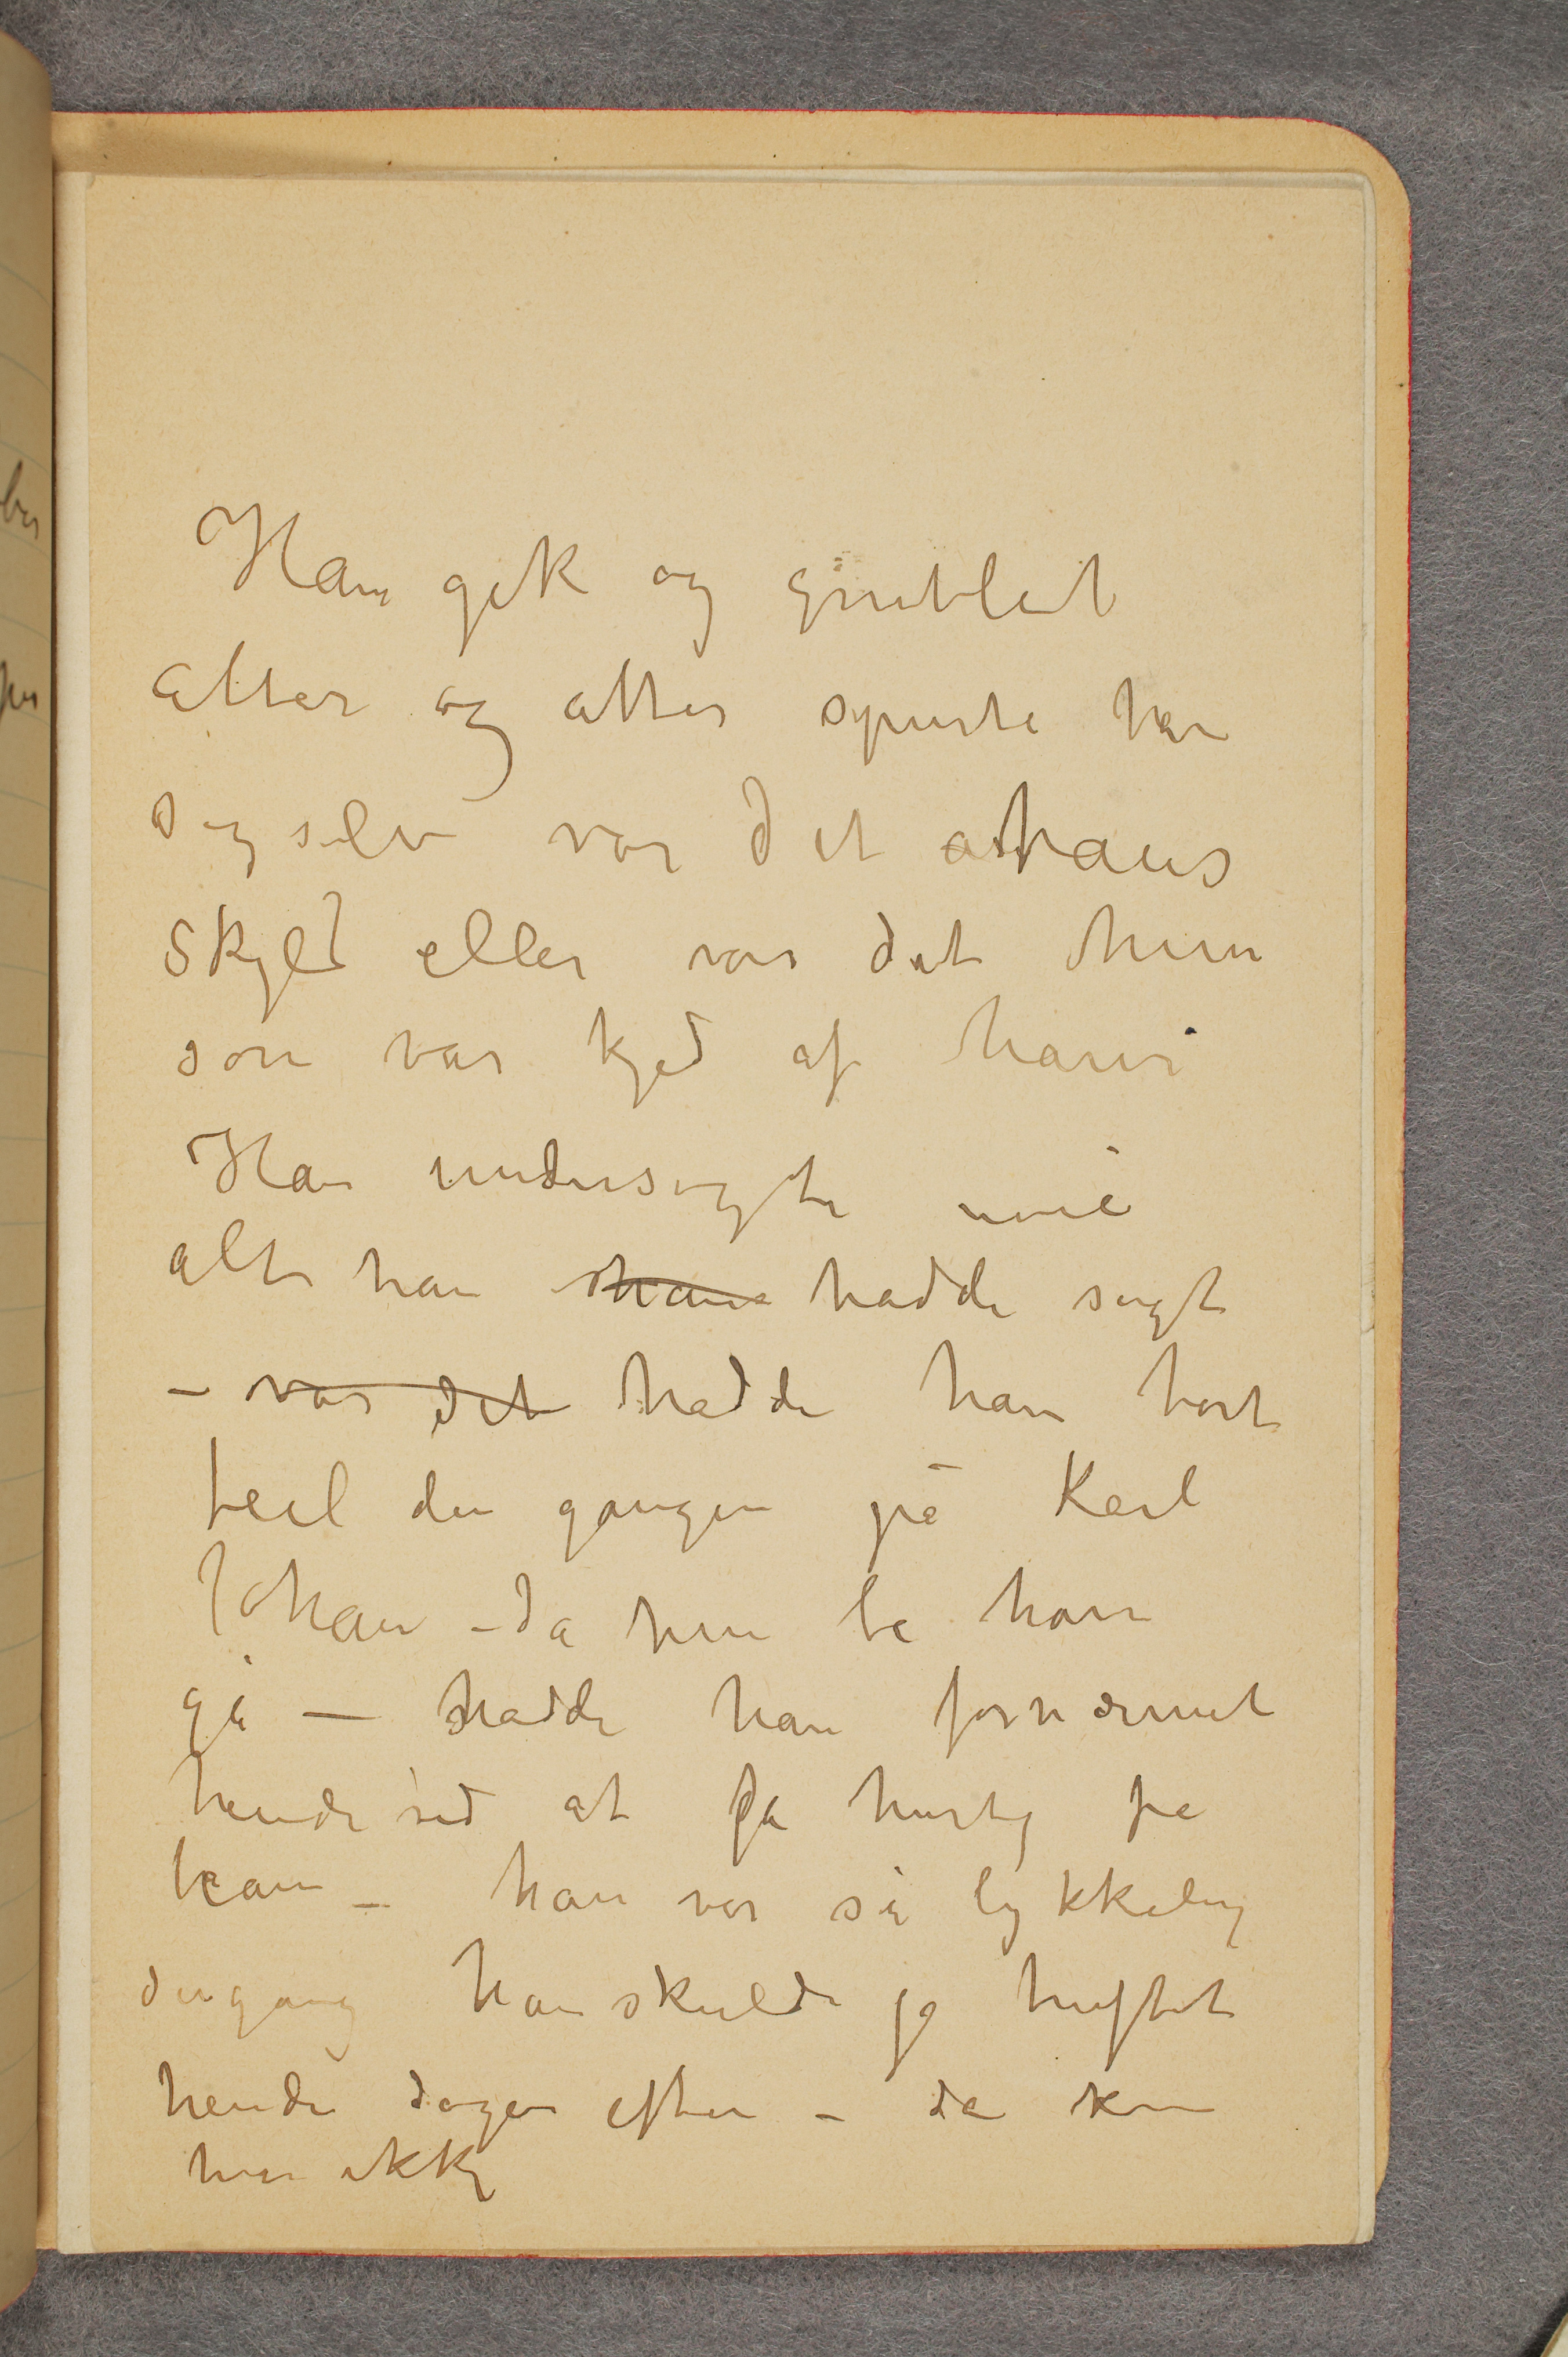 Han gik og grublet
atter og atter spurte han
sig selv var det hans
skyld eller var det hun
som var kjed af ham
Han undersøgte nøie
alt han han hadde sagt
– var det hadde han hørt
feil den gangen på Karl
Johan – da hun ba ham
gå – hadde han fornærmet
hende ved at gå hurtig fra
ham – han var så lykkelig
dengang han skulde jo truffet
hende dagen efter – da kom
hun ikke